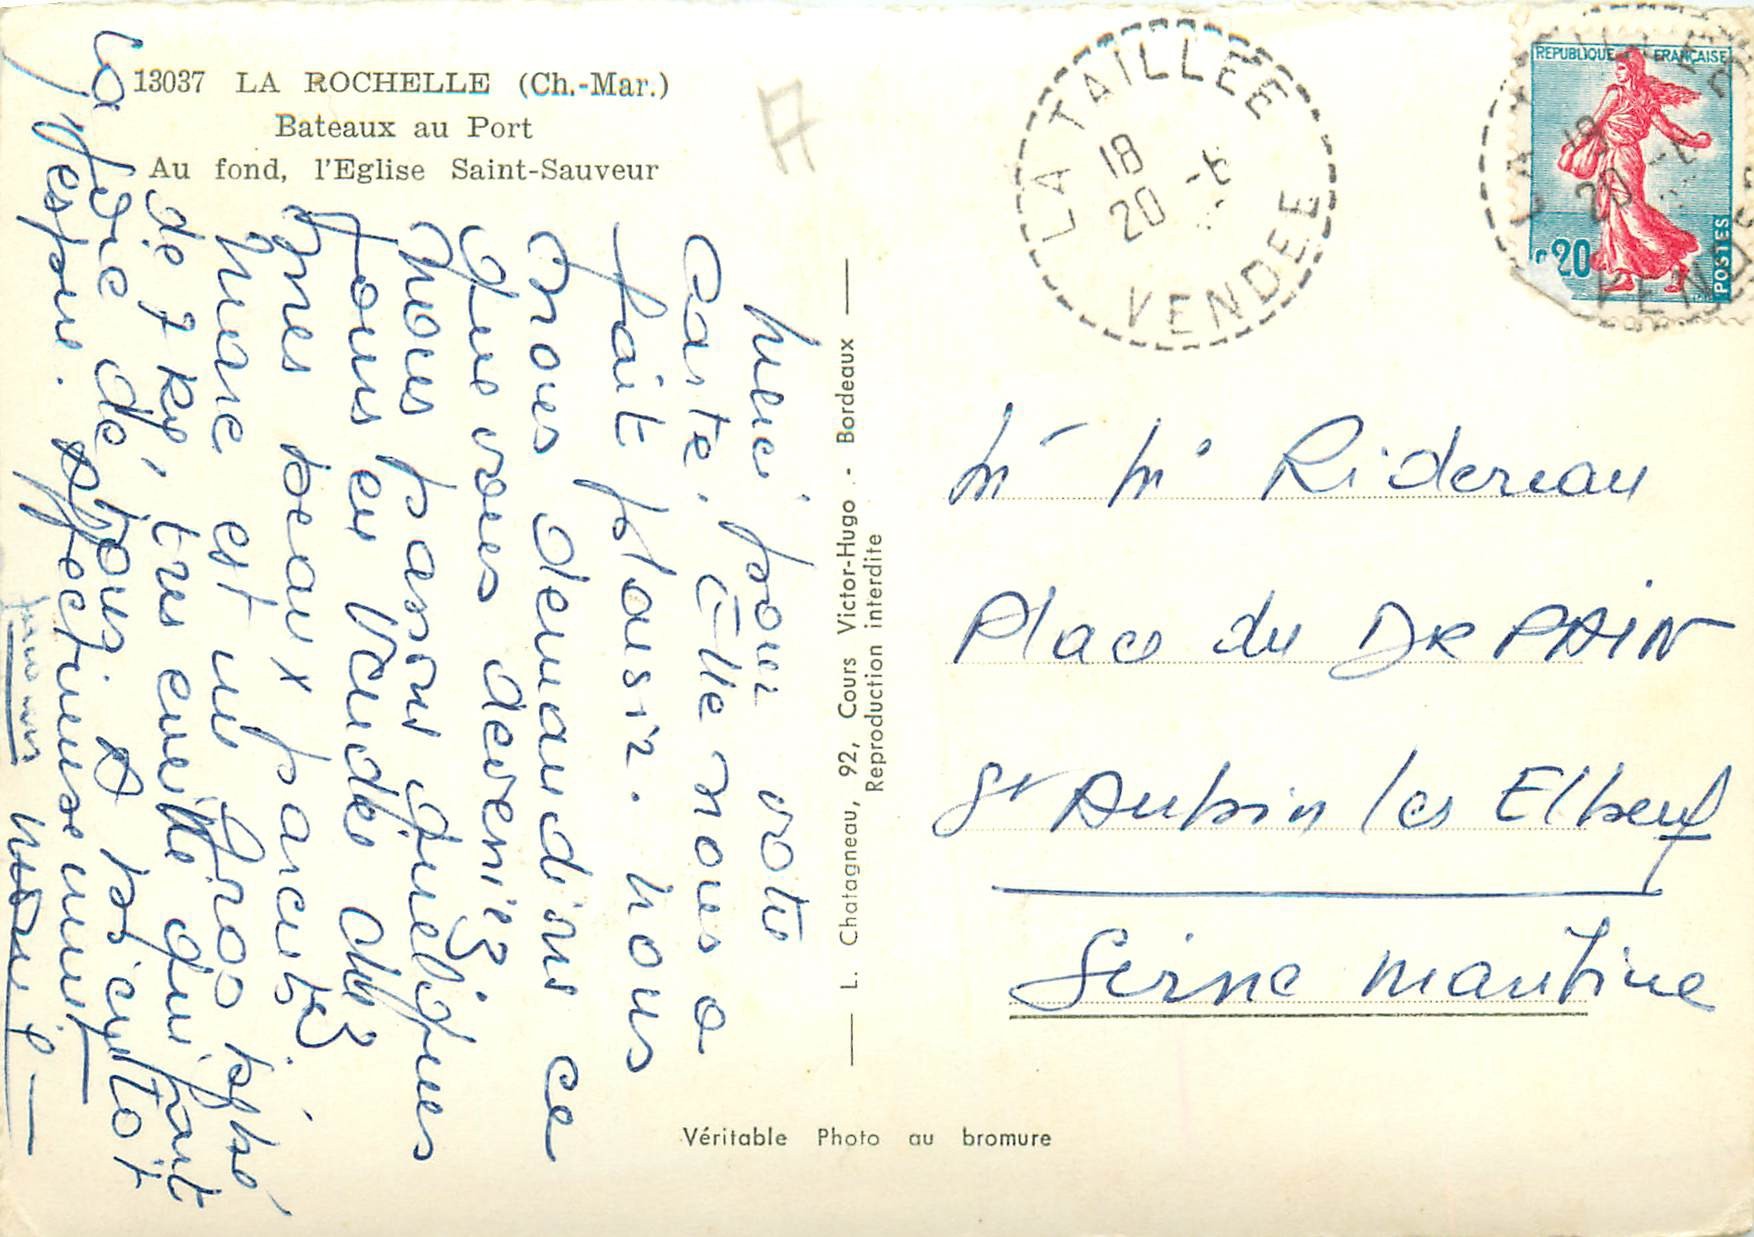 13037 LA ROCHELLE (Ch.-Mar.)
Bateaux au Port
Au fond, l'Eglise Saint-Sauveur
Merci pour votre
Carte. Elle nous a
fait plaisir. Nous
nous demandions ce
que vous deveniez
Nous passons quelques
jours en Vendée chez
mes beaux parents.
Marc est un gros bébé
de 7 kg, très éveillé qui fait
la joie de tous. A bientôt
j'espère. Affectueusement
L. Chatagneau, 92, Cours Victor-Hugo - Bordeaux
Reproduction interdite
Véritable Photo au bromure
LA TAILLEE
18
20 -
VENDEE
REPUBLIQUE FRANÇAISE
0,20
POSTES
18
20
VENDEE
Mr Me Ridereau
Place du DR PAIN
St Aubin les Elbeuf
Seine Maritime